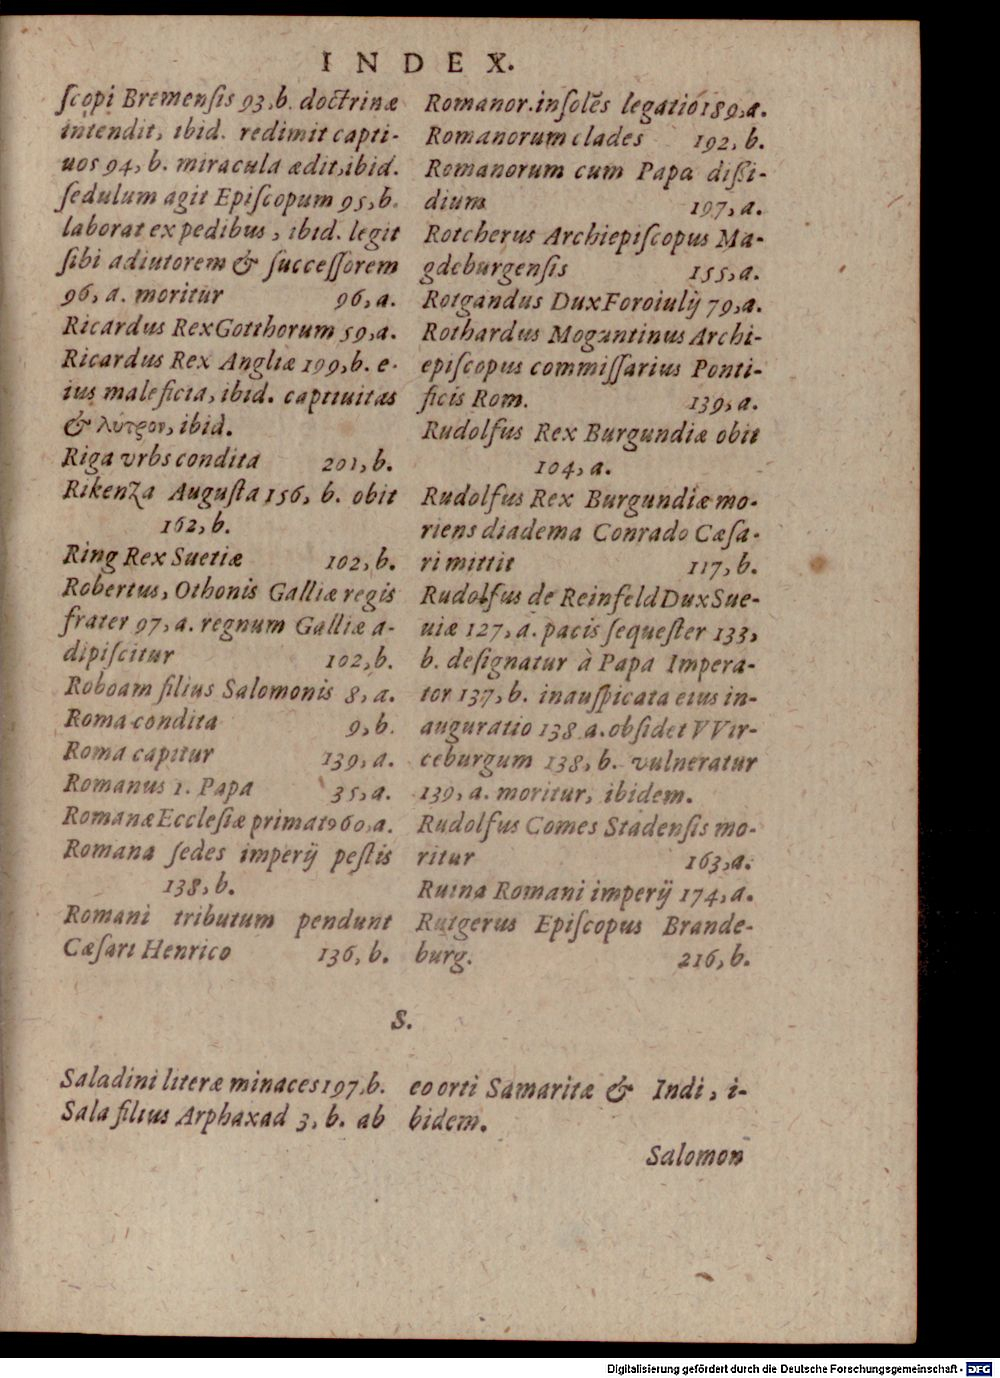 INDEX.
ſcopi Bremenſis 93, b. doctrinæ
intendit, ibid. redimit capti-
uos 94, b. miracula ædit, ibid.
ſedulum agit Epiſcopum 95, b.
laborat ex pedibus, ibid. legit
ſibi adiutorem & ſucceſſorem
96, a. moritur 96, a.
Ricardus Rex Gotthorum 59, a.
Ricardus Rex Angliæ 199, b. e-
ius maleficia, ibid. captiuitas
& λύτρον, ibid.
Riga vrbs condita 201, b.
Rikenza Auguſta 156, b. obit
162, b.
Ring Rex Suetiæ 102, b.
Robertus, Othonis Galliæ regis
frater 97, a. regnum Galliæ a-
dipiſcitur 102, b.
Roboam filius Salomonis 8, a.
Roma condita 9, b.
Roma capitur 139, a.
Romanus 1. Papa 35, a.
Romanæ Eccleſiæ primatꝰ 60, a.
Romana ſedes imperij peſtis
138, b.
Romani tributum pendunt
Cæſari Henrico 136, b.
Romanor. inſolēs legatio 189, a.
Romanorum clades 192, b.
Romanorum cum Papa diſſi-
dium 197, a.
Rotcherus Archiepiſcopus Ma-
gdeburgenſis 155, a.
Rotgandus Dux Foroiulij 79, a.
Rothardus Moguntinus Archi-
epiſcopus commiſſarius Ponti-
ficis Rom. 139, a.
Rudolfus Rex Burgundiæ obit
104, a.
Rudolfus Rex Burgundiæ mo-
riens diadema Conrado Cæſa-
ri mittit 117, b.
Rudolfus de Reinfeld Dux Sue-
uiæ 127, a. pacis ſequeſter 133,
b. deſignatur à Papa Impera-
tor 137, b. inauſpicata eius in-
auguratio 138 a. obſidet VVir-
ceburgum 138, b. vulneratur
139, a. moritur, ibidem.
Rudolfus Comes Stadenſis mo-
ritur 163, a.
Ruina Romani imperij 174, a.
Rutgerus Epiſcopus Brande-
burg. 216, b.
S.
Saladini literæ minaces 197, b.
Sala filius Arphaxad 3, b. ab
eo orti Samaritæ & Indi, i-
bidem.
Salomon
Digitalisierung gefördert durch die Deutsche Forschungsgemeinschaft - DFG